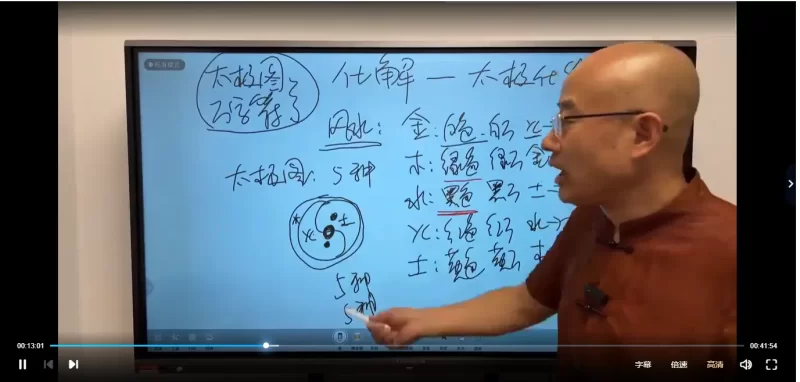 太极图
不容易了
化解一太极化
风水：
金：白色 白石 火
太极图：5种
木：绿色 绿石 金
水：黑色 黑石 土
火：红色 红石 水
土：黄色 黄石 木
木
火
土
5种
5种
00:13:01
00:41:54
字幕
倍速
高清